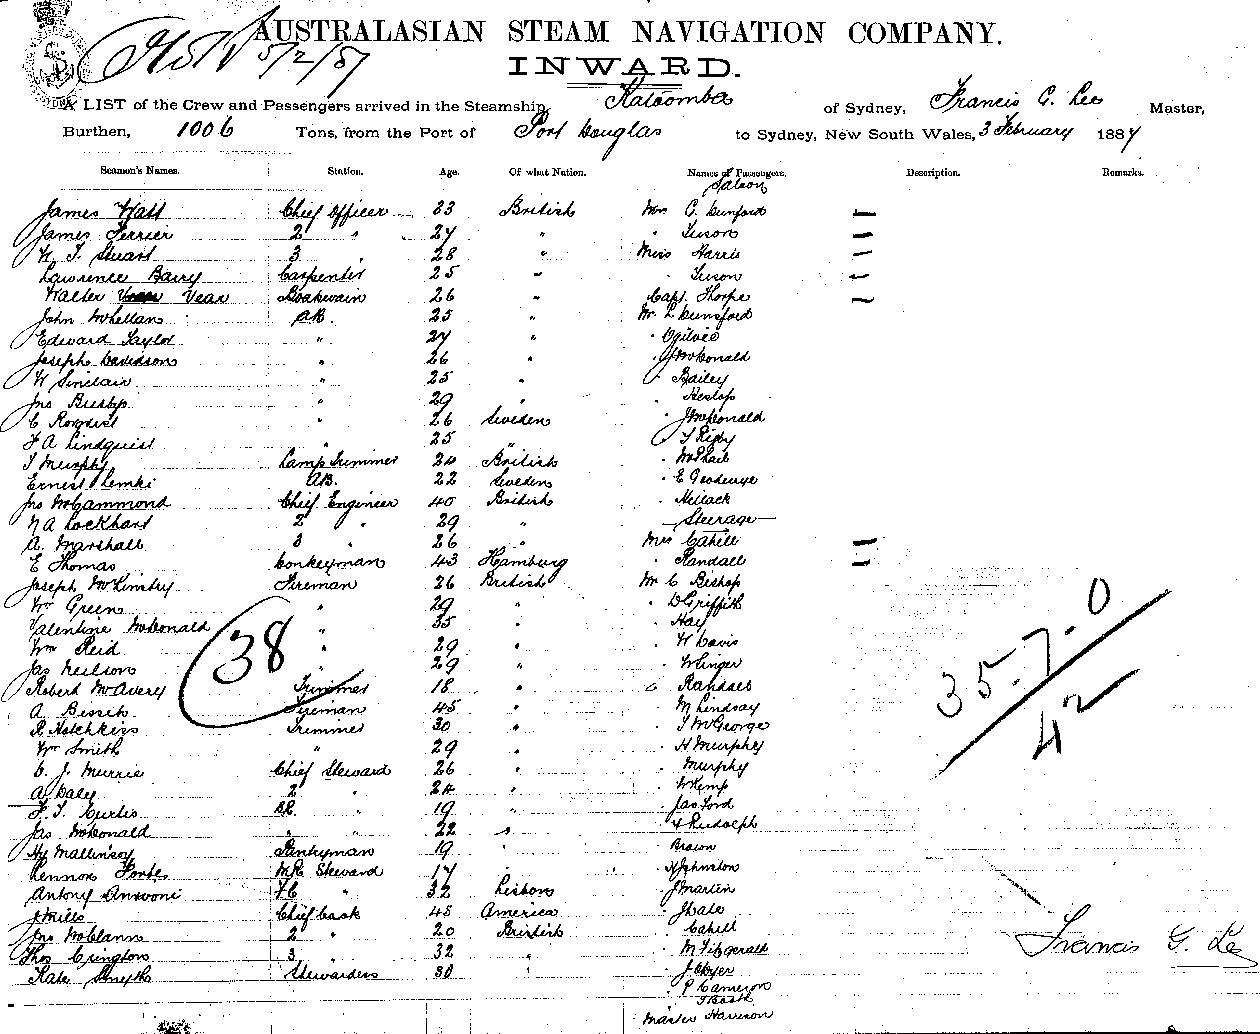 AUSTRALASIAN STEAM NAVIGATION COMPANY.
5/2/87
INWARD.
A LIST of the Crew and Passengers arrived in the Steamship, Katoomba of Sydney, Francis G. Lee Master,
Burthen, 1006 Tons, from the Port of Port Douglas to Sydney, New South Wales, 3 February 1887
Seamen's Names. Station. Age. Of what Nation. Names of Passengers. Description. Remarks.
Saloon
James Watt Chief Officer 33 British Mrs C. Dunsford —
James Ferrier 2 " 27 " " Tuson —
W. T. Stuart 3 " 28 " Miss Harris —
Lawrence Barry Carpenter 25 " " Tuson —
Walter Vear Boatswain 26 " Capt. Thorpe —
John McLellan AB. 25 " Mr L Dunsford
Edward Taylor " 27 " " Ogilvie
Joseph Davidson " 26 " " J McDonald
W Sinclair " 25 " " Bailey
Jno " 29 " " Heslop
C " 26 Sweden " J McDonald
F A Lindquist " 25 " " T Rigby
T Murphy Lamp Trimmer 24 British " McPhail
Ernest Lemki AB. 22 Sweden " E
Jno McGammond Chief Engineer 40 British "
N A Lockhart 2 " 29 " — Steerage —
A. Marshall 3 " 26 " Mrs Cahill —
E Thomas Donkeyman 43 Hamburg " Randall —
Joseph McKimby Fireman 26 British Mr C Bishop
Wm Green " 29 " " D Griffith
Valentine McDonald " 35 " " Hay
Wm Reid " 29 " " W Davis
Jas Neilson " 29 " "
Robert McAvery Trimmer 18 " " Randall
A. Fireman 45 " " M Lindsay
R Hotchkiss Trimmer 30 " " T McGeorge
Wm Smith " 29 " " H Murphy
D. J. Murrie Chief Steward 26 " " Murphy
A Daly 2 " 24 " " W Kemp
F. T. Curtis BR. 19 " " Jas Ford
Jas McDonald " " 22 " " Rudolph
Hy Mallinson Pantryman 19 " " Brown
Lennox Forbes Steward 17 " " Johnston
Antony 32 Lisbon " J Martin
J Mills Chief Cook 45 America "
Jno McClann 2 " 20 British " Cahill
Thos 3 " 32 " " M Fitzgerald
Kate Smyth Stewardess 30 " " J Dyer
" P Cameron
Master Harrison
38
35-7-0
42
Francis G. Lee